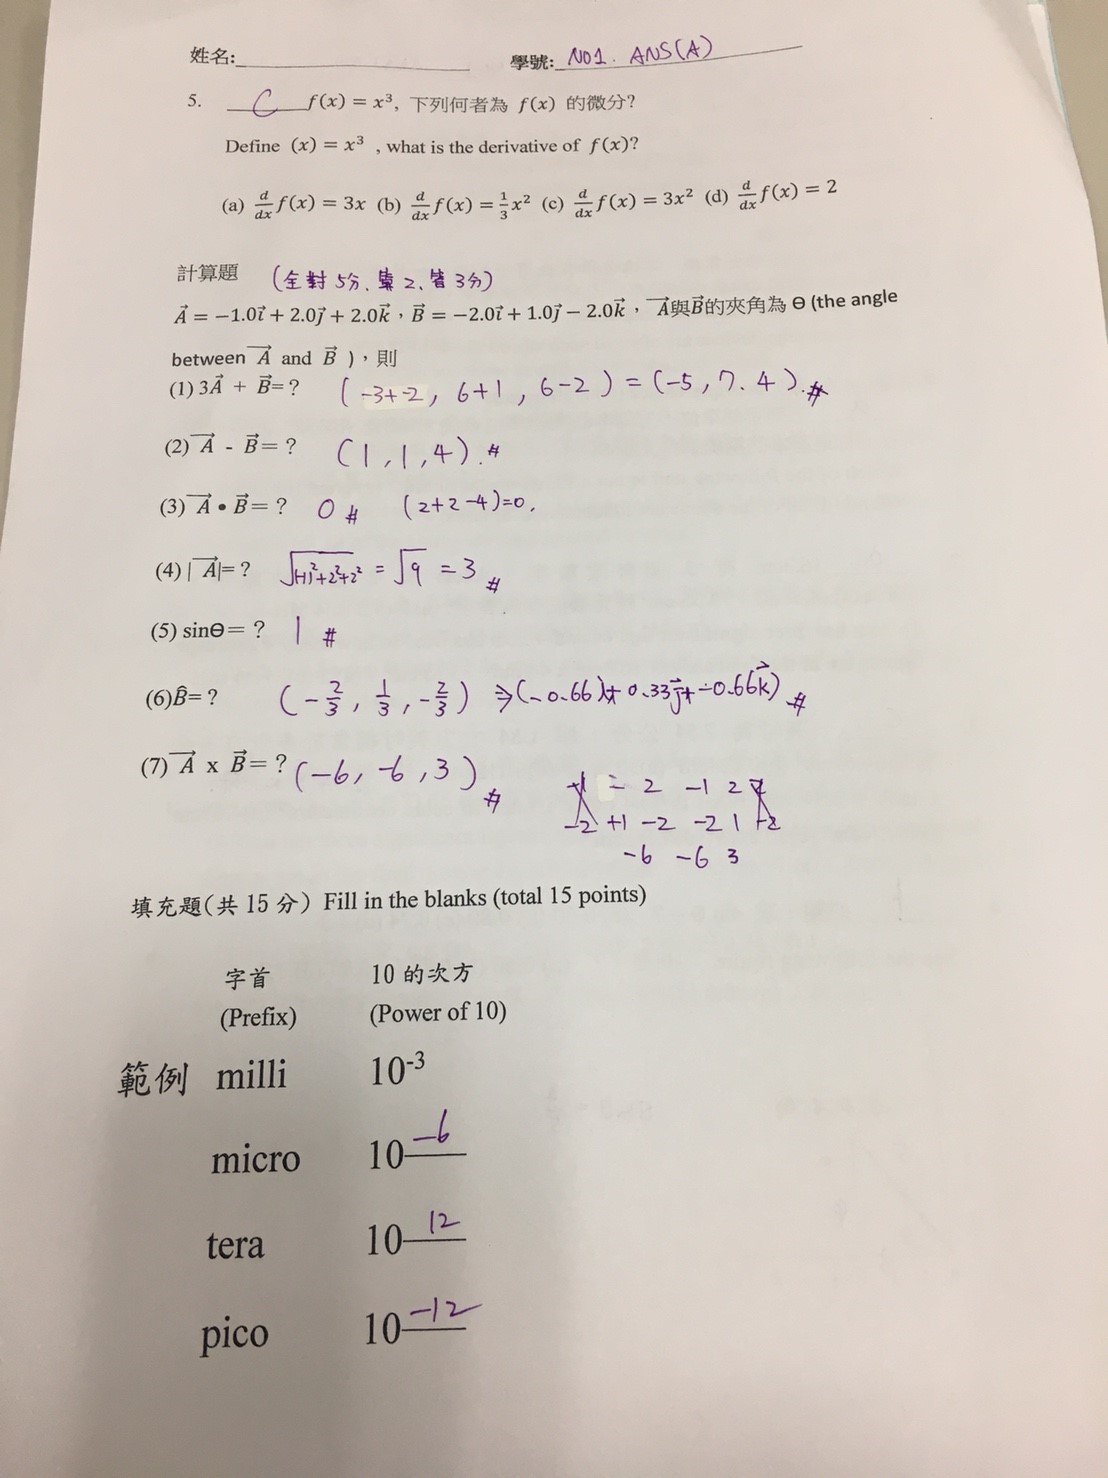 姓名:____________ 學號: NO1. ANS(A)
5. C f(x) = x³, 下列何者為 f(x) 的微分?
Define (x) = x³ , what is the derivative of f(x)?
(a) d/dx f(x) = 3x (b) d/dx f(x) = 1/3 x² (c) d/dx f(x) = 3x² (d) d/dx f(x) = 2
計算題 (全對5分、算2、答3分)
A⃗ = −1.0i⃗ + 2.0j⃗ + 2.0k⃗，B⃗ = −2.0i⃗ + 1.0j⃗ − 2.0k⃗， A⃗與B⃗的夾角為 Θ (the angle
between A⃗ and B⃗ )，則
(1) 3A⃗ + B⃗= ? (-3+-2, 6+1, 6-2) = (-5, 7. 4).#
(2) A⃗ - B⃗= ? (1, 1, 4).#
(3) A⃗ • B⃗= ? 0 # (2+2-4)=0.
(4) | A⃗|= ? √(-1)²+2²+2² = √9 = 3 #
(5) sinΘ= ? 1 #
(6)B̂= ? (-2/3, 1/3, -2/3) ⇒ (-0.66)+ 0.33j⃗+ -0.66k⃗) #
(7) A⃗ x B⃗= ? (-6, -6, 3) #
2 -1 2
-2 +1 -2 -2 1 -2
-6 -6 3
填充題(共 15 分) Fill in the blanks (total 15 points)
字首 10 的次方
(Prefix) (Power of 10)
範例 milli 10⁻³
micro 10 -6
tera 10 12
pico 10 -12